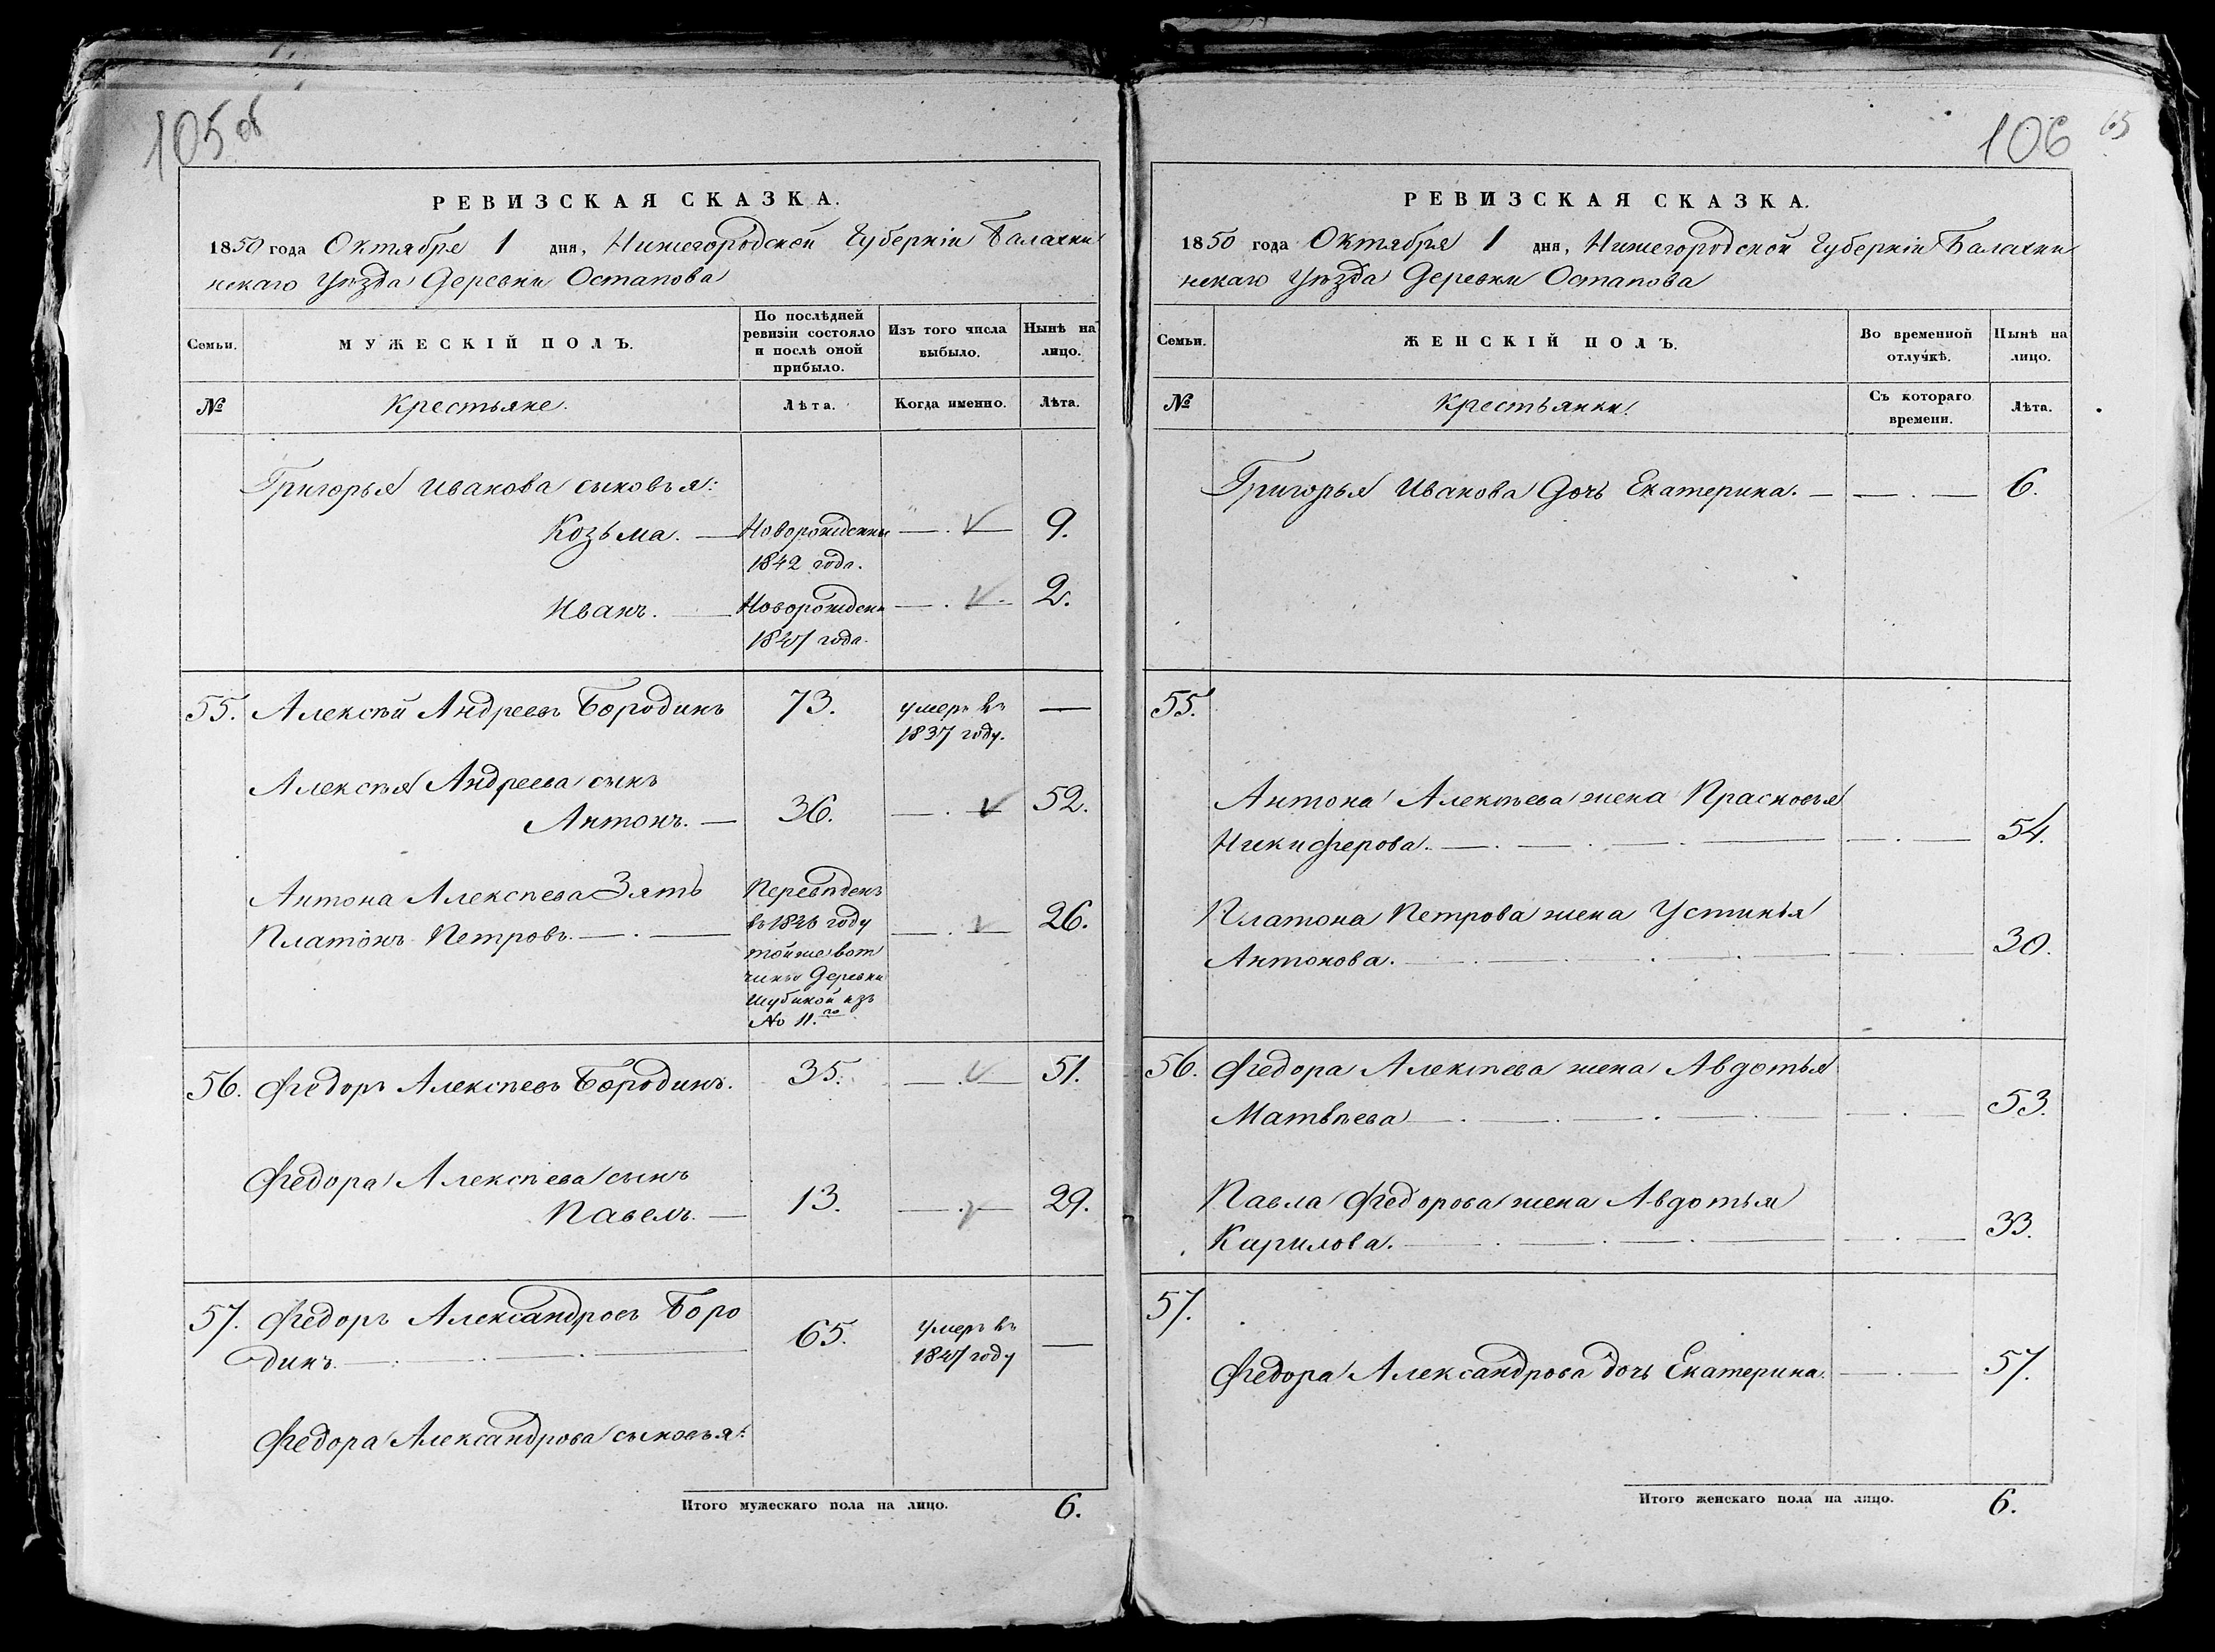 105 об
РЕВИЗСКАЯ СКАЗКА.
1850 года Октября 1 дня, Нижегородской Губерніи Балахни
нскаго Уѣзда Деревни Остапова
Семьи.
МУЖЕСКІЙ ПОЛЪ.
По послѣдней
ревизіи состояло
и послѣ оной
прибыло.
Изъ того числа
выбыло.
Нынѣ на
лицо.
№
Крестьяне.
Лѣта.
Когда именно.
Лѣта.
Григорья Иванова сыновья:
Козьма. — Новорожденны — . — 9.
1842 года.
Иванъ. — Новорожден — . — 2.
1847 года.
55. Алексѣй Андреевъ Бородинъ 73. умеръ въ —
1837 году.
Алексѣя Андреева сынъ
Антонъ. — 36. — . — 52.
Антона Алексѣева Зять
Платонъ Петровъ. — . — 26.
Переведенъ
въ 1846 году
тойже вот
чины Деревни
Шубиной изъ
№ 11.го
56. Федоръ Алексѣевъ Бородинъ. 35. — . — 51.
Федора Алексѣева сынъ
Павелъ. — 13. — . — 29.
57. Федоръ Александровъ Боро
динъ. — . — . — 65. умеръ въ —
1847 году
Федора Александрова сыновья:
Итого мужескаго пола на лицо. 6.
106
65
РЕВИЗСКАЯ СКАЗКА.
1850 года Октября 1 дня, Нижегородской Губерніи Балахни
нскаго Уѣзда Деревни Остапова
Семьи.
ЖЕНСКІЙ ПОЛЪ.
Во временной
отлучкѣ.
Нынѣ на
лицо.
№
Крестьянки.
Съ котораго
времени.
Лѣта.
Григорья Иванова Дочь Екатерина. — — . — 6.
55.
Антона Алексѣева жена Прасковья
Никиферова. — . — . — . — — . — 54.
Платона Петрова жена Устинья
Антонова. — . — . — . — — . — 30.
56. Федора Алексѣева жена Авдотья
Матвѣева — . — . — . — — . — 53.
Павла Федорова жена Авдотья
Кирилова. — . — . — . — — . — 33.
57.
Федора Александрова дочь Екатерина. — . — 57.
Итого женскаго пола на лицо. 6.